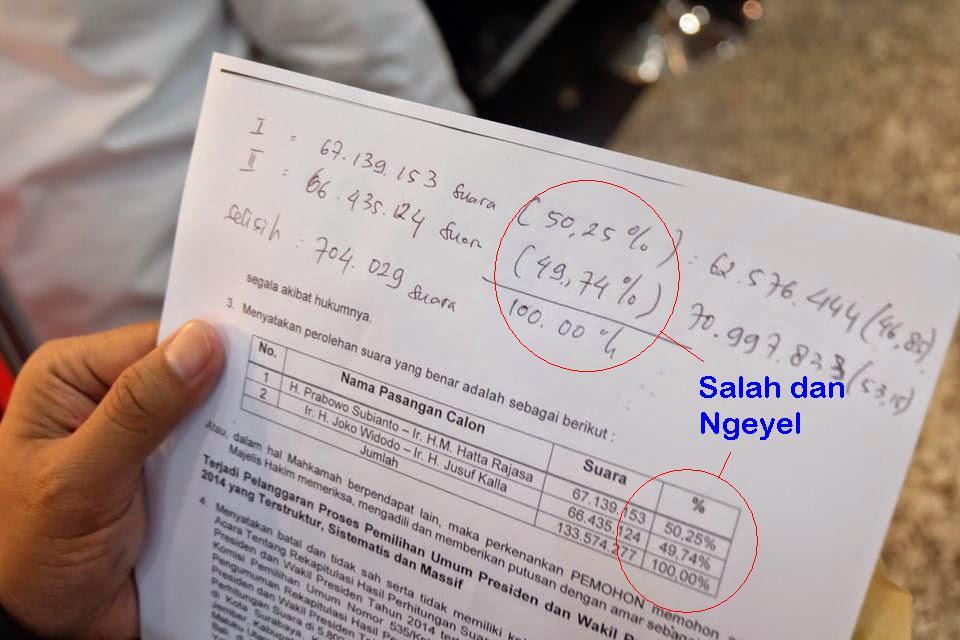 I : 67.139.153 suara (50,25%) : 62.576.444 (46,85)
II : 66.435.124 suara (49,74%) 70.997.833 (53,15)
selisih : 704.029 suara 100.00 %
Salah dan
Ngeyel
segala akibat hukumnya.
3. Menyatakan perolehan suara yang benar adalah sebagai berikut :
No. Nama Pasangan Calon Suara %
1 H. Prabowo Subianto – Ir. H.M. Hatta Rajasa 67.139.153 50,25%
2 Ir. H. Joko Widodo – Ir. H. Jusuf Kalla 66.435.124 49,74%
Jumlah 133.574.277 100,00%
Atau, dalam hal Mahkamah berpendapat lain, maka perkenankan PEMOHON memohon
Majelis Hakim memeriksa, mengadili dan memberikan putusan dengan amar sebagai
Terjadi Pelanggaran Proses Pemilihan Umum Presiden dan Wakil
2014 yang Terstruktur, Sistematis dan Massif
4. Menyatakan batal dan tidak sah serta tidak memiliki
Acara Tentang Rekapitulasi Hasil Perhitungan
Presiden dan Wakil Presiden Tahun 2014
Komisi Pemilihan Umum Nomor
Pengumuman Rekapitulasi Hasil
Presiden dan Wakil Presiden
Perhitungan Suara di
di Kota Surabaya,
Jember, Kabupaten